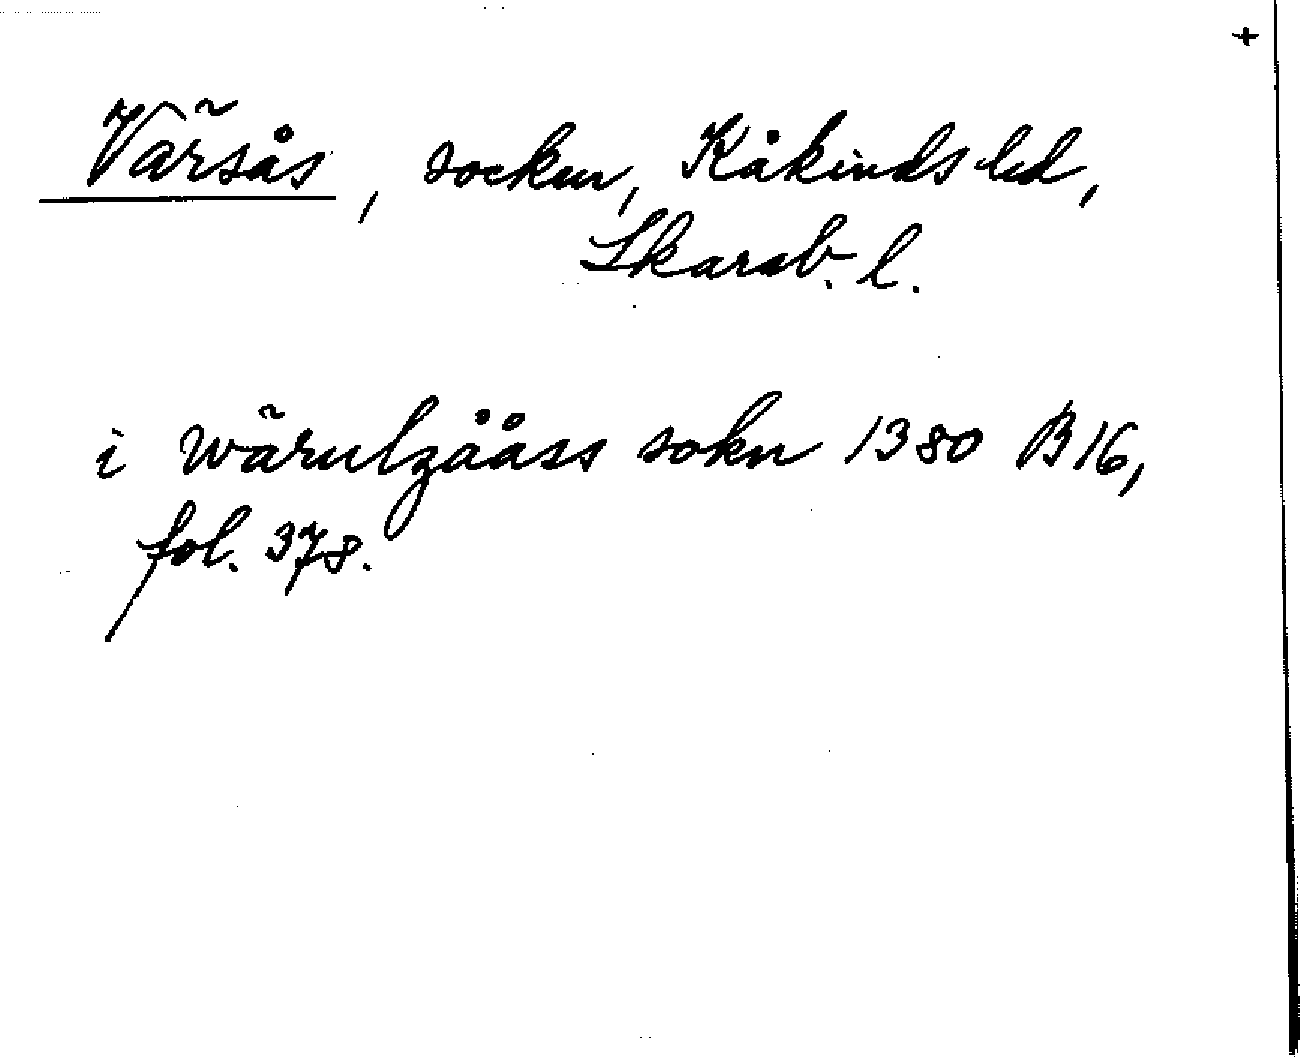 +
Värsås, socken, Kåkinds hd,
Skarab. l.
i wärulzååss sokn 1380 B16,
fol. 378.